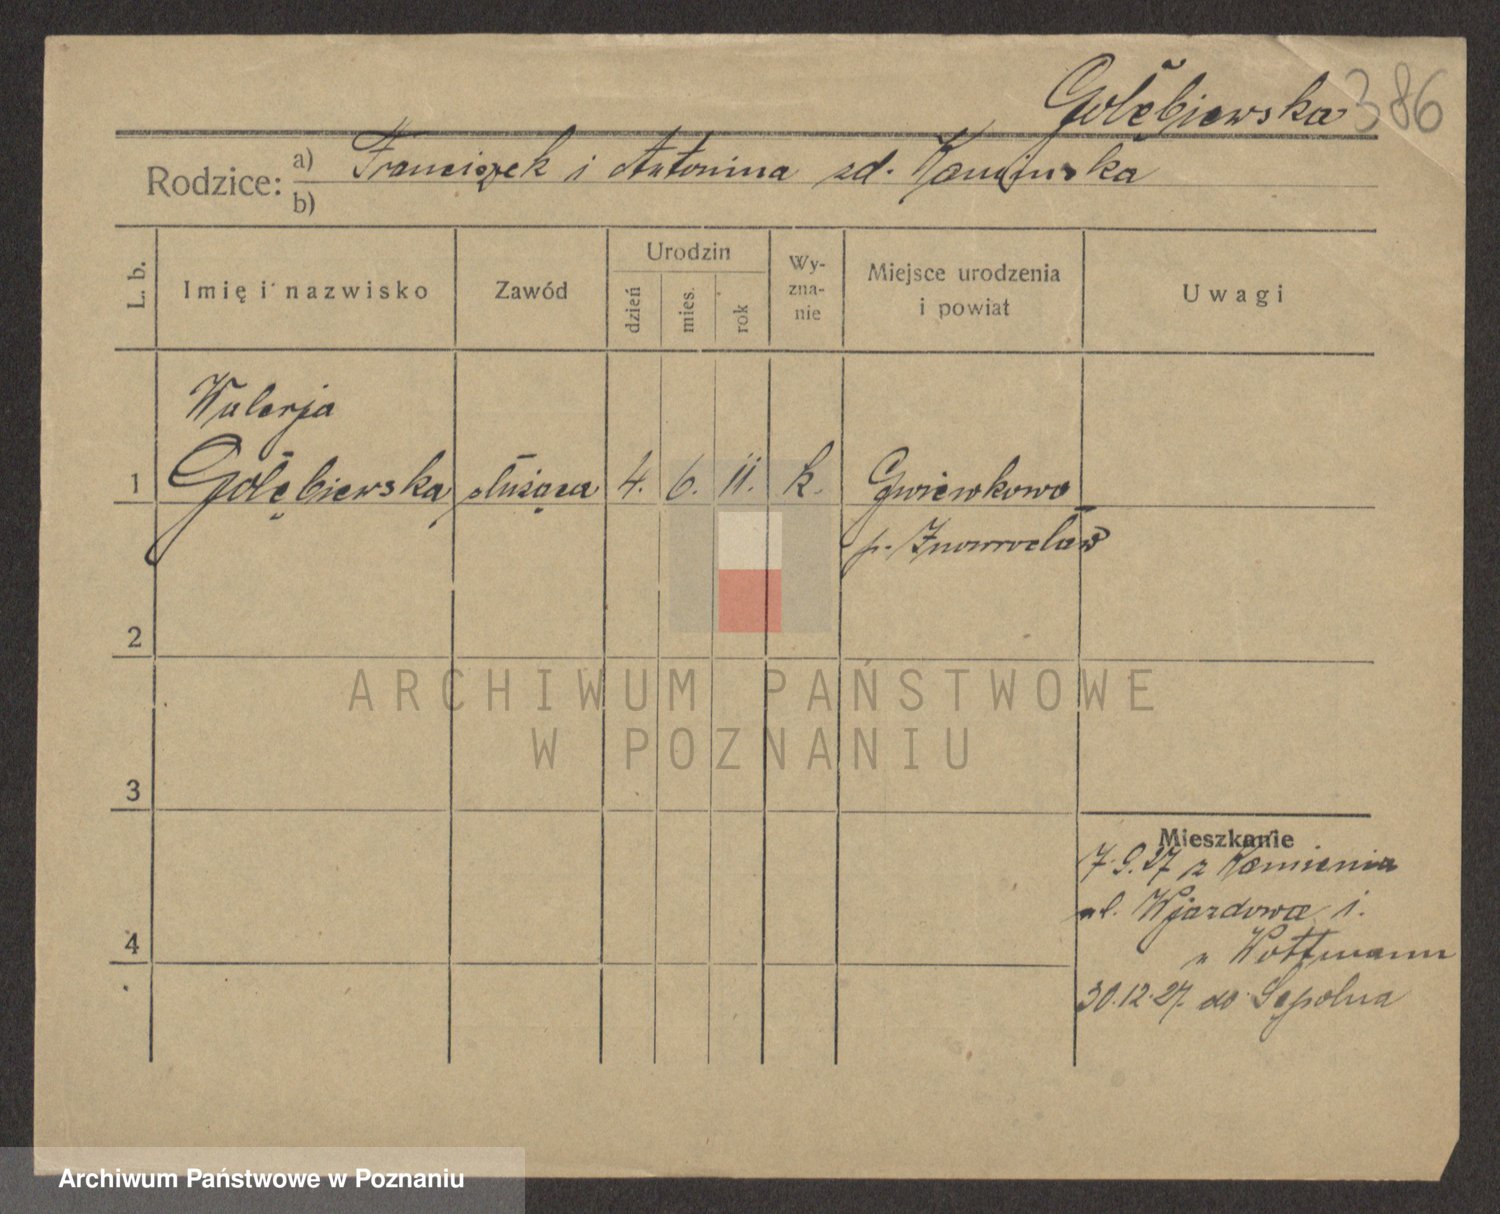 Gołębiewska 386
Rodzice: a) Franciszek i Antonina zd. Kamińska
b)
L. b.
Imię i nazwisko
Zawód
Urodzin
dzień
mies.
rok
Wy-
zna-
nie
Miejsce urodzenia
i powiat
Uwagi
Walerja
1 Gołębiewska służąca 4. 6. 11. k. Gniewkowo
p. Inowrocław
2
ARCHIWUM PAŃSTWOWE
W POZNANIU
3
Mieszkanie
7.9.27 z Kamienia
ul. Wjazdowa 1.
u Wottmann
4
30.12.27. do Sępolna
Archiwum Państwowe w Poznaniu